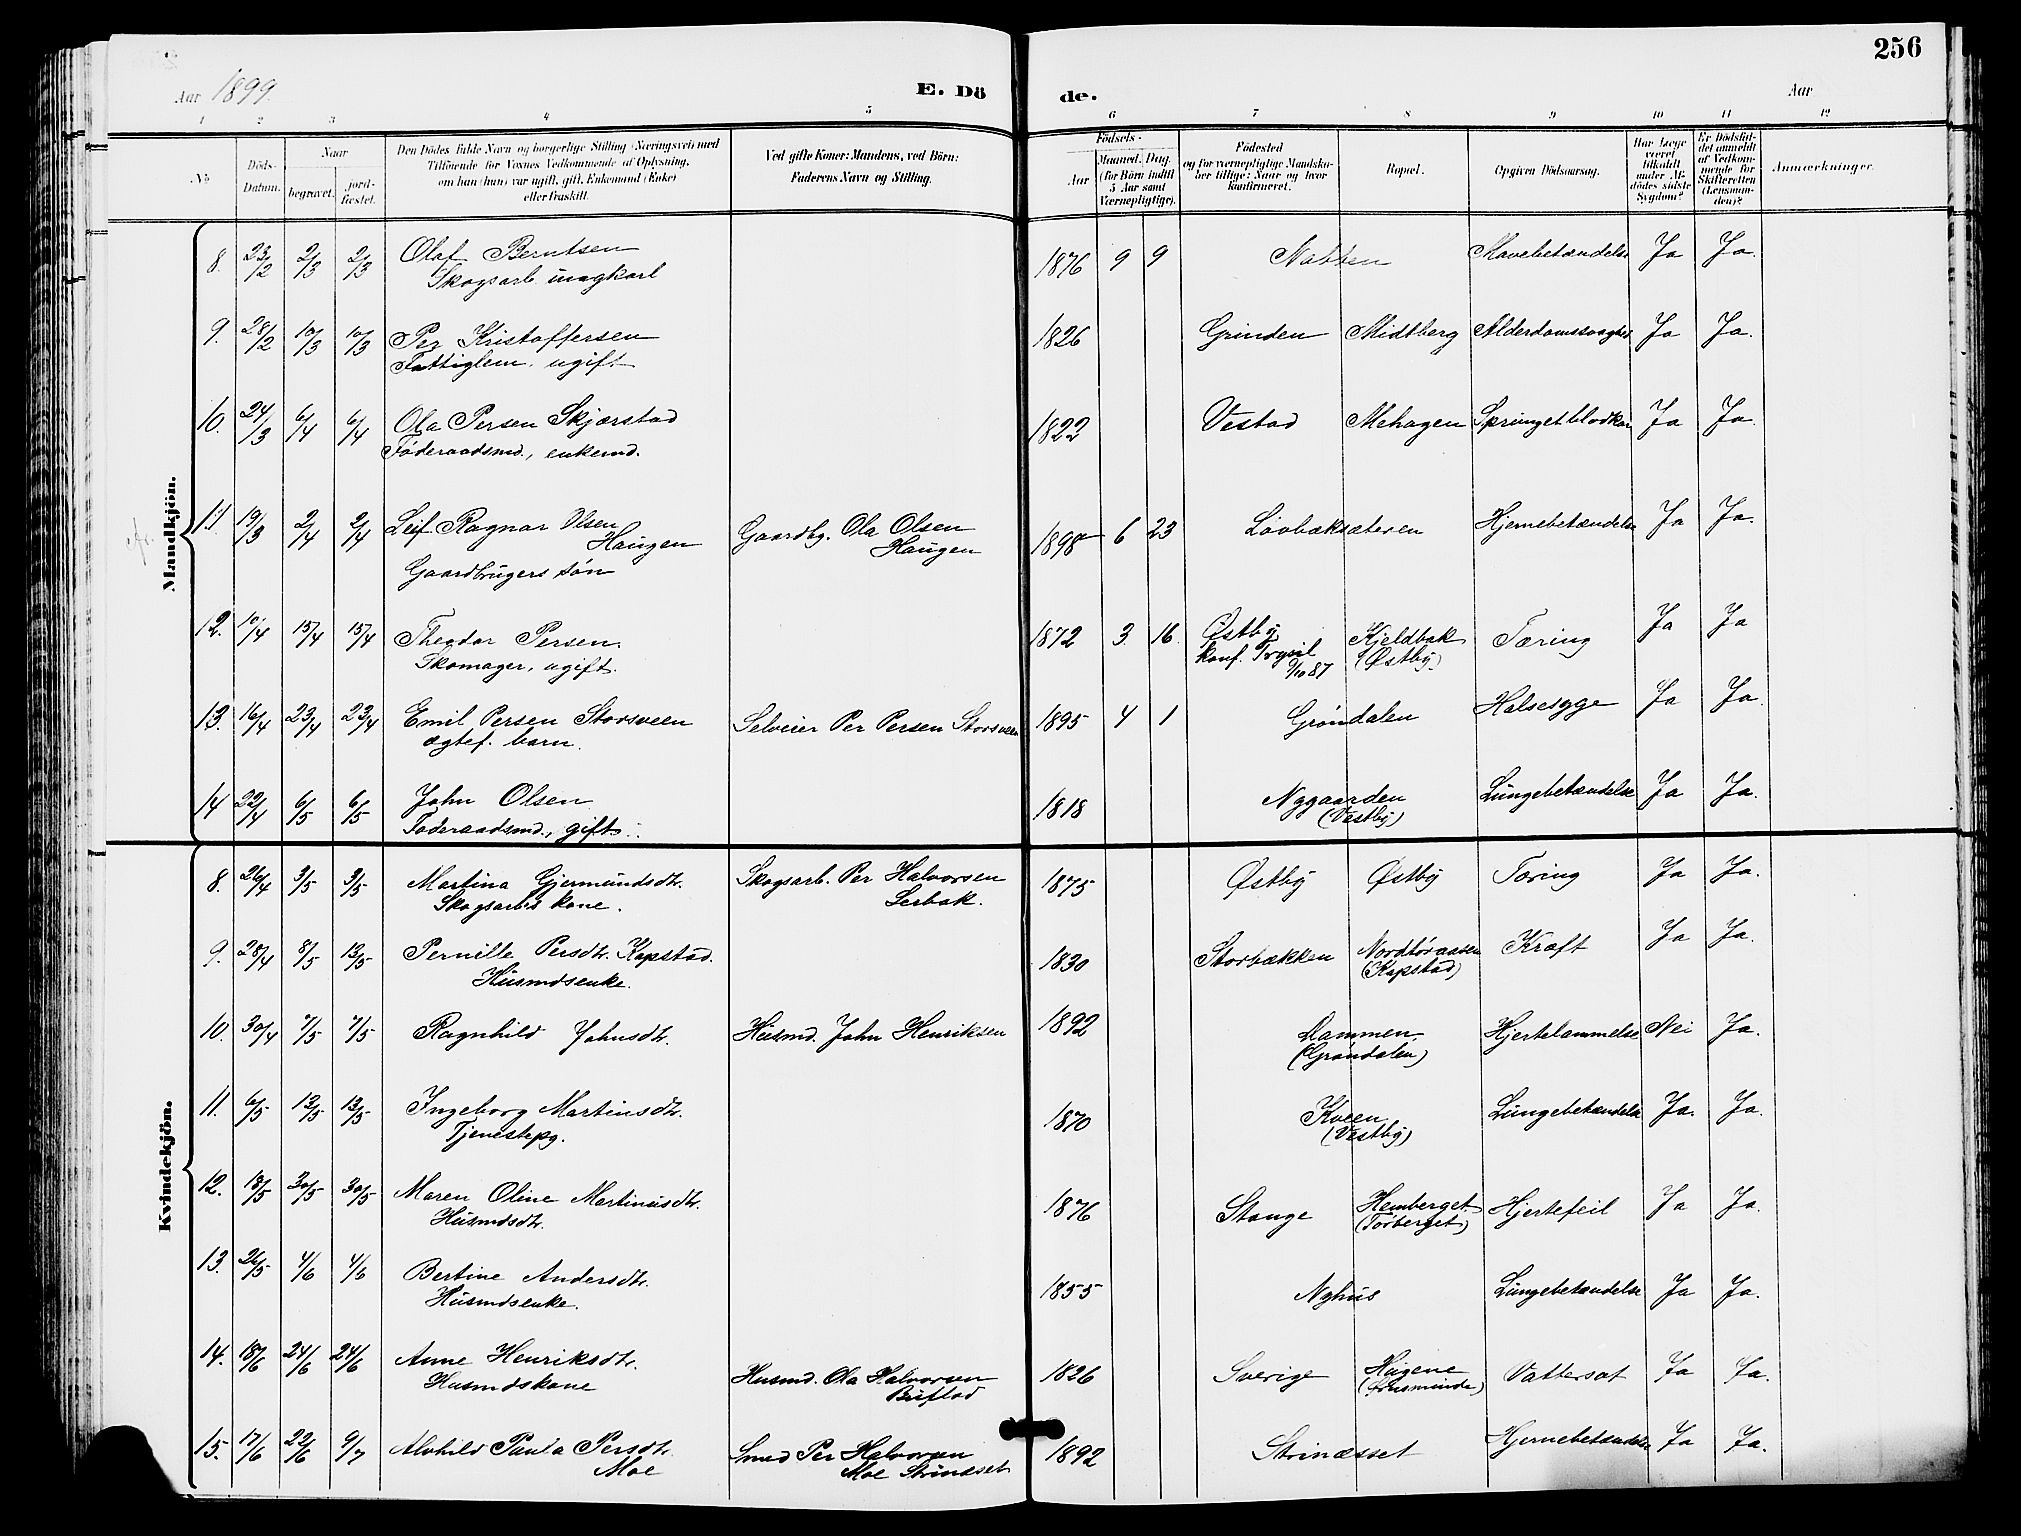 256
Aar 1899.
E. Dö
de.
Aar
1 2 3 4 5 6 7 8 9 10 11 12
No
Döds-Datum.
Naar
begravet.
jord-fæstet.
Den Dödes fulde Navn og borgerlige Stilling (Næringsvei) med
Tilföiende for Voxnes Vedkommende af Oplysning,
om han (hun) var ugift, gift, Enkemand (Enke)
eller fraskilt.
Ved gifte Koner: Mandens, ved Börn:
Faderens Navn og Stilling.
Födsels-
Aar
Maaned. Dag.
(for Börn indtil
5 Aar samt
Værnepligtige).
Födested
og for værnepligtige Mandska-
ber tillige: Naar og hvor
konfirmeret.
Bopæl.
Opgiven Dödsaarsag.
Har Læge
været
tilkaldt
under Af-
dödes sidste
Sygdom?
Er Dödsfal-
det anmeldt
af Vedkom-
mende for
Skifteretten
(Lensman-
den)?
Anmærkninger.
Mandkjön.
8. 23/2 2/3 2/3 Olaf Berntsen 1876 9 9 Natten Mavebetændelse Ja Ja.
Skogsarb. ungkarl
9. 28/2 10/3 10/3 Per Kristoffersen 1826 Grinden Midtberg Alderdomssvaghed Ja Ja.
Fattiglem, ugift
10. 24/3 6/4 6/4 Ola Persen Skjærstad 1822 Vestad Mehagen Sprunget blodkar Ja Ja.
Føderaadsmd., enkemd.
11 19/3 2/4 2/4 Leif Ragnar Olsen Gaardbg. Ola Olsen 1898 6 23 Løvbæksæteren Hjernebetændelse Ja Ja.
Haugen Haugen
Gaardbrugers søn
12. 10/4 15/4 15/4 Theodor Persen. 1872 3. 16. Østby Kjeldbak Tæring Ja Ja
Skomager, ugift. konf. Trysil (Østby)
2/10 87
13. 16/4 23/4 23/4 Emil Persen Storsveen Selveier Per Persen Storsveen 1895 4 1 Grøndalen Halsesyge Ja Ja.
ægtef. barn.
14 22/4 6/5 6/5 John Olsen 1818 Nygaarden Lungebetændelse Ja Ja.
Føderaadsmd., gift. (Vestby)
Kvindekjön.
8. 26/4 3/5 3/5 Martina Gjermundsdtr. Skogsarb. Per Halvorsen 1875 Østby Østby Tæring Ja Ja.
Skogsarbs kone. Lerbak.
9. 28/4 8/5 13/5 Pernille Persdtr. Kapstad. 1830 Storbækken Nordtøraasen Kræft Ja Ja.
Husmdsenke. (Kapstad)
10. 30/4 7/5 7/5 Ragnhild Johnsdtr. Husmd. John Henriksen 1892 Dammen Hjertelammelse Nei Ja.
(Grøndalen)
11. 6/5 13/5 13/5 Ingeborg Martinsdtr. 1870 Kveen Lungebetændelse Ja. Ja.
Tjenestepg. (Vestby)
12. 18/5 30/5 30/5 Maren Oline Martinusdtr. 1876 Stange Hemberget Hjertefeil Ja Ja.
Husmdsdtr. (Tørberget)
13. 26/5 4/6 4/6 Bertine Andersdtr. 1855 Nyhus Lungebetændelse Ja Ja.
Husmdsenke.
14. 18/6 24/6 24/6 Anne Henriksdtr. 1826 Sverige Haugene Vattersot Ja Ja.
Husmdskone Husmd. Ola Halvorsen
Buflod
15. 17/6 22/6 9/7 Alvhild Paula Persdtr. Smed Per Halvorsen 1892 Strinæsset Hjernebetændelse Ja Ja.
Moe Moe Strinæset